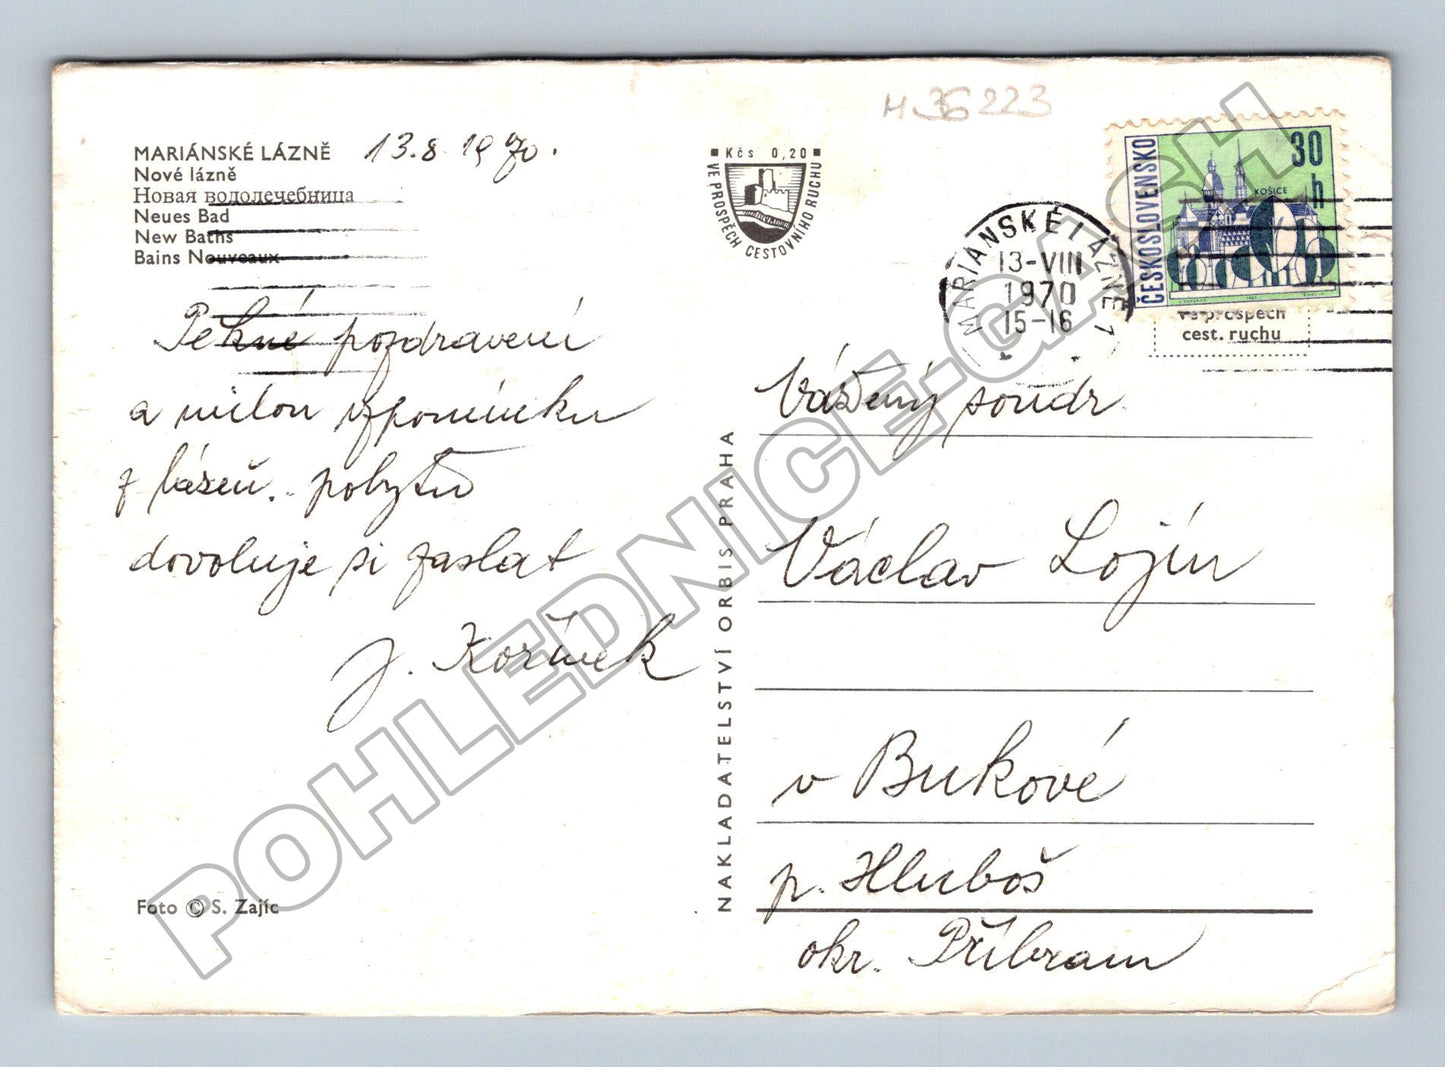 M 36223
MARIÁNSKÉ LÁZNĚ 13.8.1970.
Nové lázně
Новая водолечебница
Neues Bad
New Baths
Bains Nouveaux
Pekné pozdravení
a milou vzpomínku
z lázeň. pobytu
dovoluje si zaslat
J. Kořínek
Foto © S. Zajíc
Kčs 0,20
VE PROSPĚCH CESTOVNÍHO RUCHU
NAKLADATELSTVÍ ORBIS PRAHA
MARIÁNSKÉ LÁZNĚ 1
13-VIII
1970
15-16
ČESKOSLOVENSKO
30 h
KOŠICE
ve prospěch
cest. ruchu
Vážený soudr.
Václav Lojín
v Bukové
p. Hluboš
okr. Příbram
POHLEDNICE-GASH